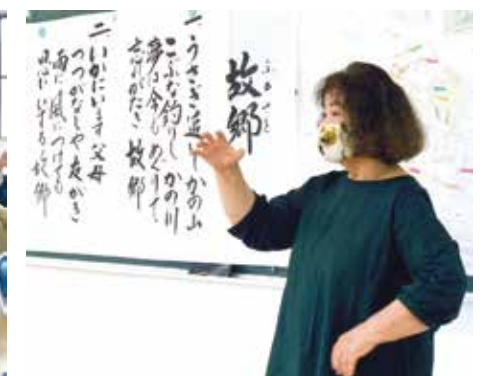 故郷
ふるさと
一、うさぎ追いし かの山
こぶな釣りし かの川
夢は今も めぐりて
忘れがたき 故郷
二、いかにいます 父母
つつがなしや 友がき
雨に 風につけても
思いいずる 故郷